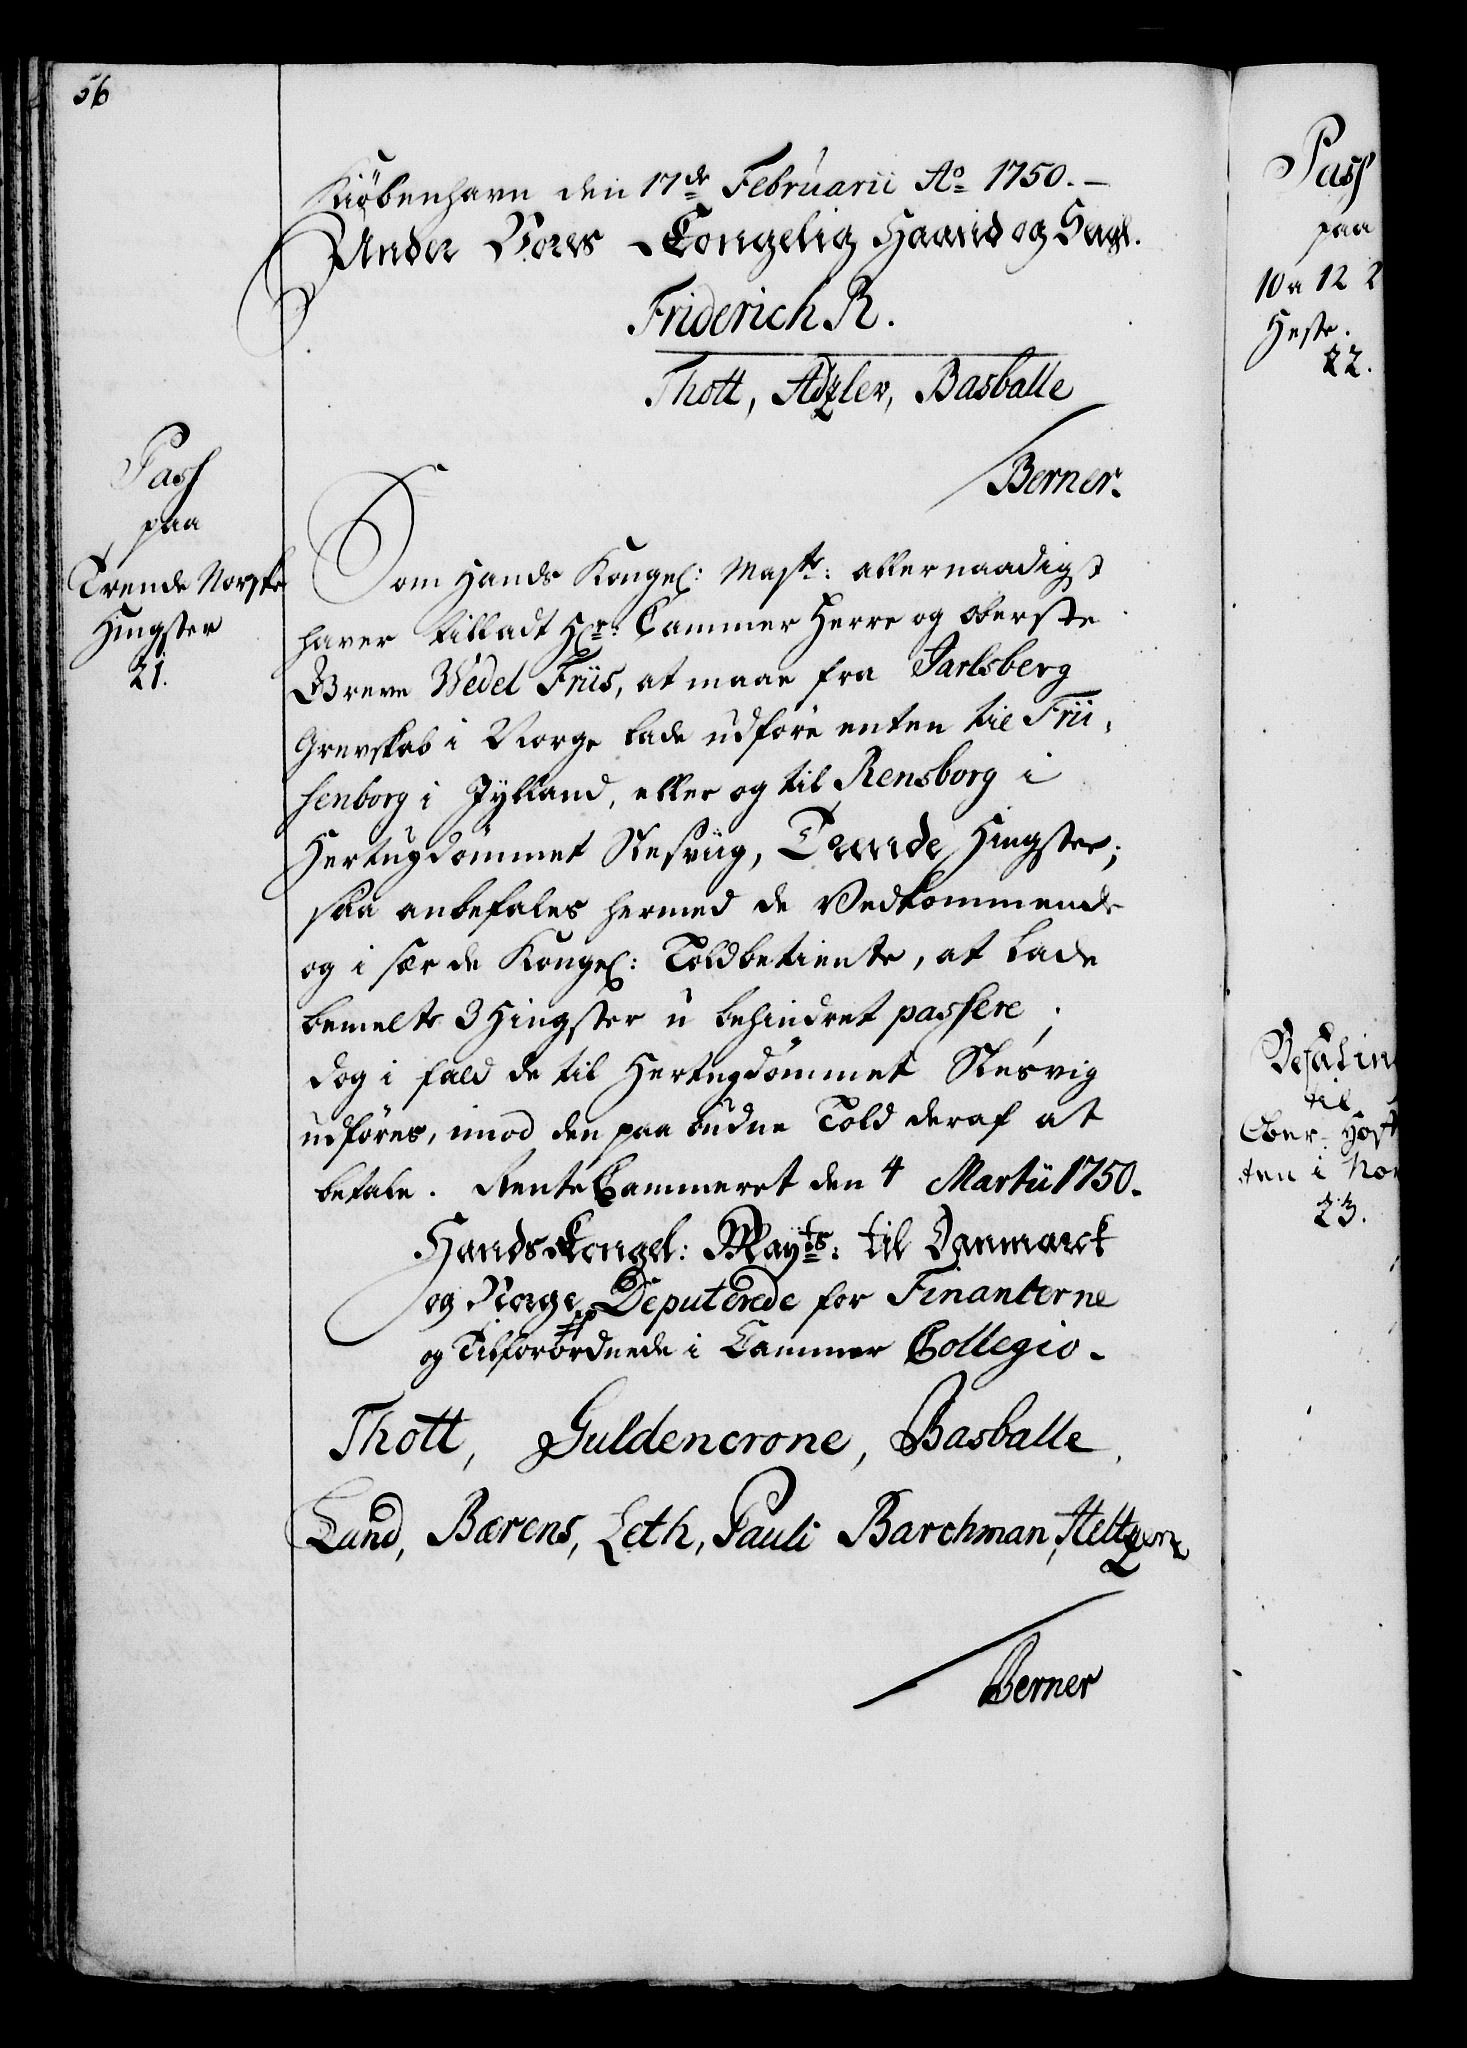 56
Kiöbenhavn den 17de Februarii Ao 1750.-
Under Vores Kongelig Haand og Segl.
Friderich R.
Thott, Adzler, Basballe
Berner.
Pass
paa
Trende Norske
Hingster
21.
Som Hands Kongel: Maytt: allernaadigst
haver tilladt Hr: Cammer Herre og Oberste
Greve Wedel Friis, at maae fra Jarlsberg
Grevskab i Norge lade udföre enten til Frii-
senborg i Jylland, eller og til Rensborg i
Hertugdömmet Slesviig, Trende Hingster;
saa anbefales hermed de Vedkommende
og i sær de Kongel: Toldbetiente, at lade
bemelte 3 Hingster u behindret passere;
dog i fald de til Hertugdömmet Slesvig
udföres, imod den paa budne Told deraf at
betale. RenteCammeret den 4 Martii 1750.
Hands Kongel: Mayts: til Danmarck
og Norge Deputerede for Financerne
og Tilforordnede i Cammer Collegio.
Thott, Guldencrone, Basballe,
Lund, Bærens, Leth, Pauli Barchman, Heltzen
Berner
Pass
paa
10 a 12 2
Heste.
22.
Befaling
til
Ober-Hof
ten i Nor
23.